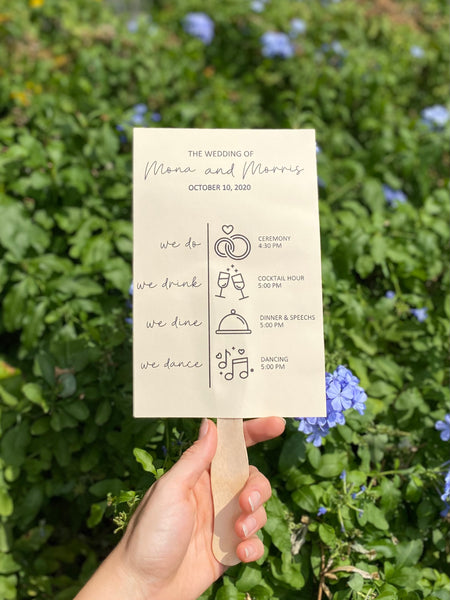 THE WEDDING OF
Mona and Morris
OCTOBER 10, 2020
we do
CEREMONY
4:30 PM
we drink
COCKTAIL HOUR
5:00 PM
we dine
DINNER & SPEECHS
5:00 PM
we dance
DANCING
5:00 PM